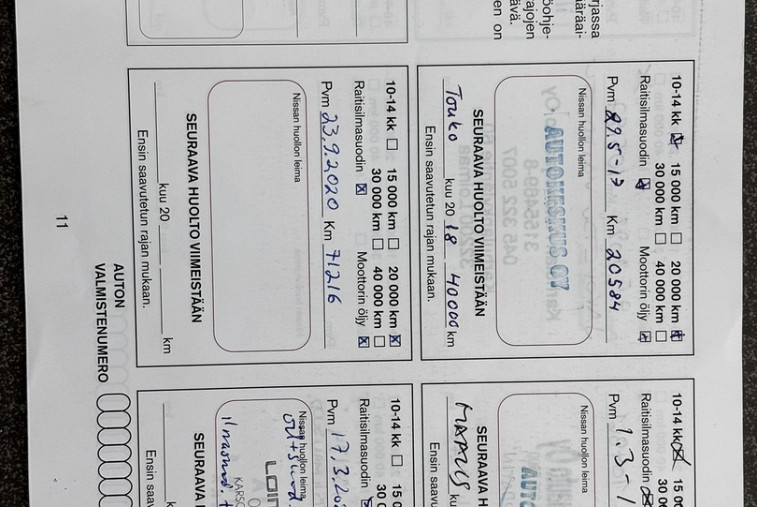 rjassa
määräai-
öohje-
rajojen
ävä.
en on
10-14 kk ☒ 15 000 km ☐ 20 000 km ☒
30 000 km ☐ 40 000 km ☐
Raitisilmasuodin ☒ Moottorin öljy ☒
Pvm 29.5-17 Km 20584
Nissan huollon leima
AUTOKESKUS OY
SEURAAVA HUOLTO VIIMEISTÄÄN
Touko kuu 20 18 40000 km
Ensin saavutetun rajan mukaan.
10-14 kk ☐ 15 000 km ☐ 20 000 km ☒
30 000 km ☐ 40 000 km ☐
Raitisilmasuodin ☒ Moottorin öljy ☒
Pvm 23.9.2020 Km 71216
Nissan huollon leima
SEURAAVA HUOLTO VIIMEISTÄÄN
kuu 20 km
Ensin saavutetun rajan mukaan.
10-14 kk ☒ 15 00
30 00
Raitisilmasuodin ☒
Pvm 1.3-1
Nissan huollon leima
AUTO
SEURAAVA H
MAALIS ku
Ensin saavu
10-14 kk ☐ 15 0
30 0
Raitisilmasuodin
Pvm 17.3.202
Nissan huollon leima
SEURAAVA
k
Ensin saav
11
AUTON
VALMISTENUMERO